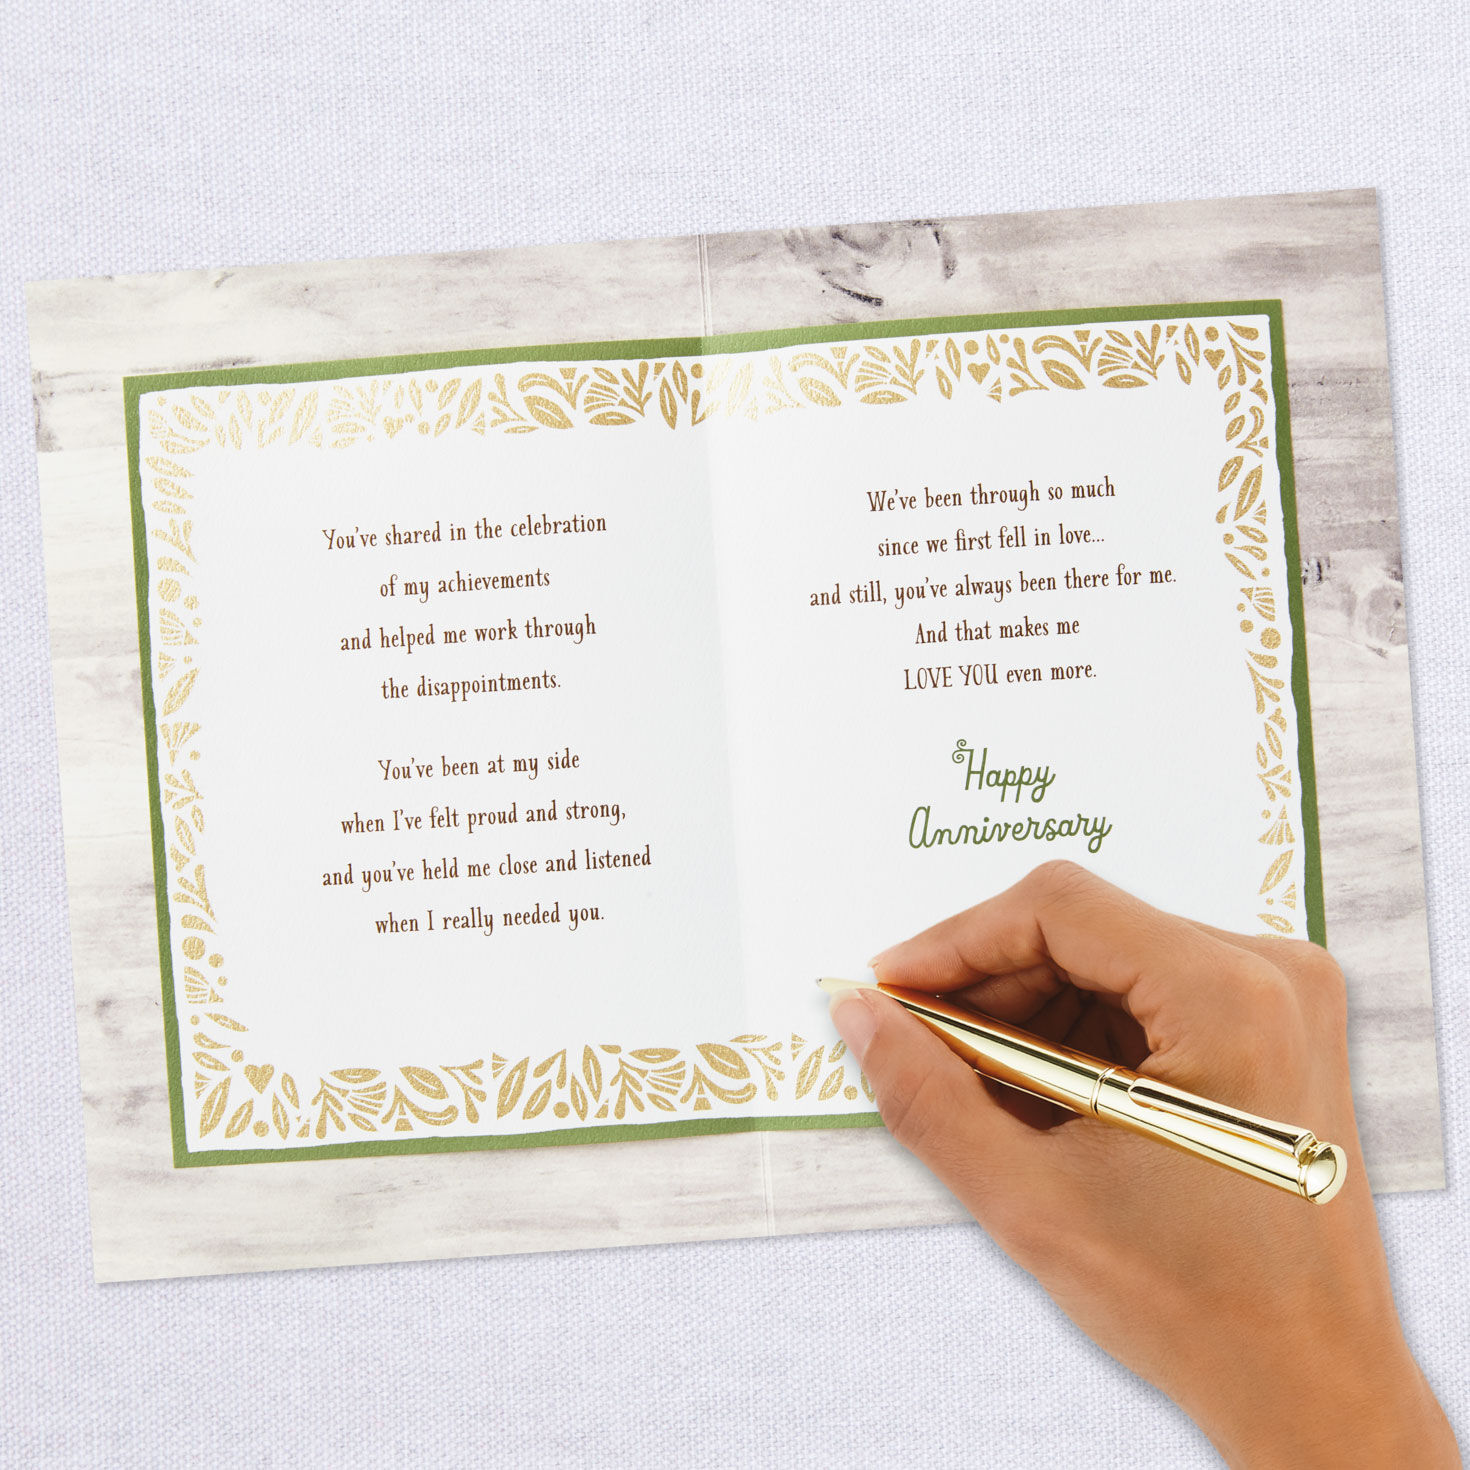 You've shared in the celebration
of my achievements
and helped me work through
the disappointments.
You've been at my side
when I've felt proud and strong,
and you've held me close and listened
when I really needed you.
We've been through so much
since we first fell in love...
and still, you've always been there for me.
And that makes me
LOVE YOU even more.
Happy
Anniversary